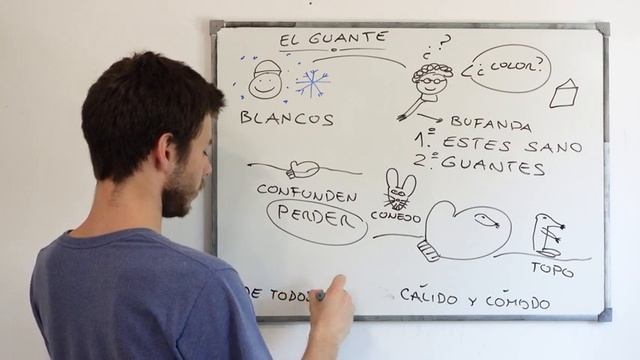 EL GUANTE
¿?
¿COLOR?
BLANCOS
BUFANDA
1.º ESTES SANO
2.º GUANTES
CONFUNDEN
PERDER
CONEJO
TOPO
DE TODOS
CÁLIDO Y CÓMODO